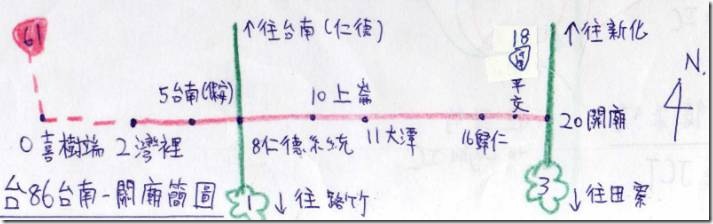 61
↑往台南(仁德)
18
平交
↑往新化
N.
5台南
10上崙
0喜樹端
2灣裡
8仁德系統
11大潭
16歸仁
20關廟
台86台南-關廟簡圖
1
↓往路竹
3
↓往田寮